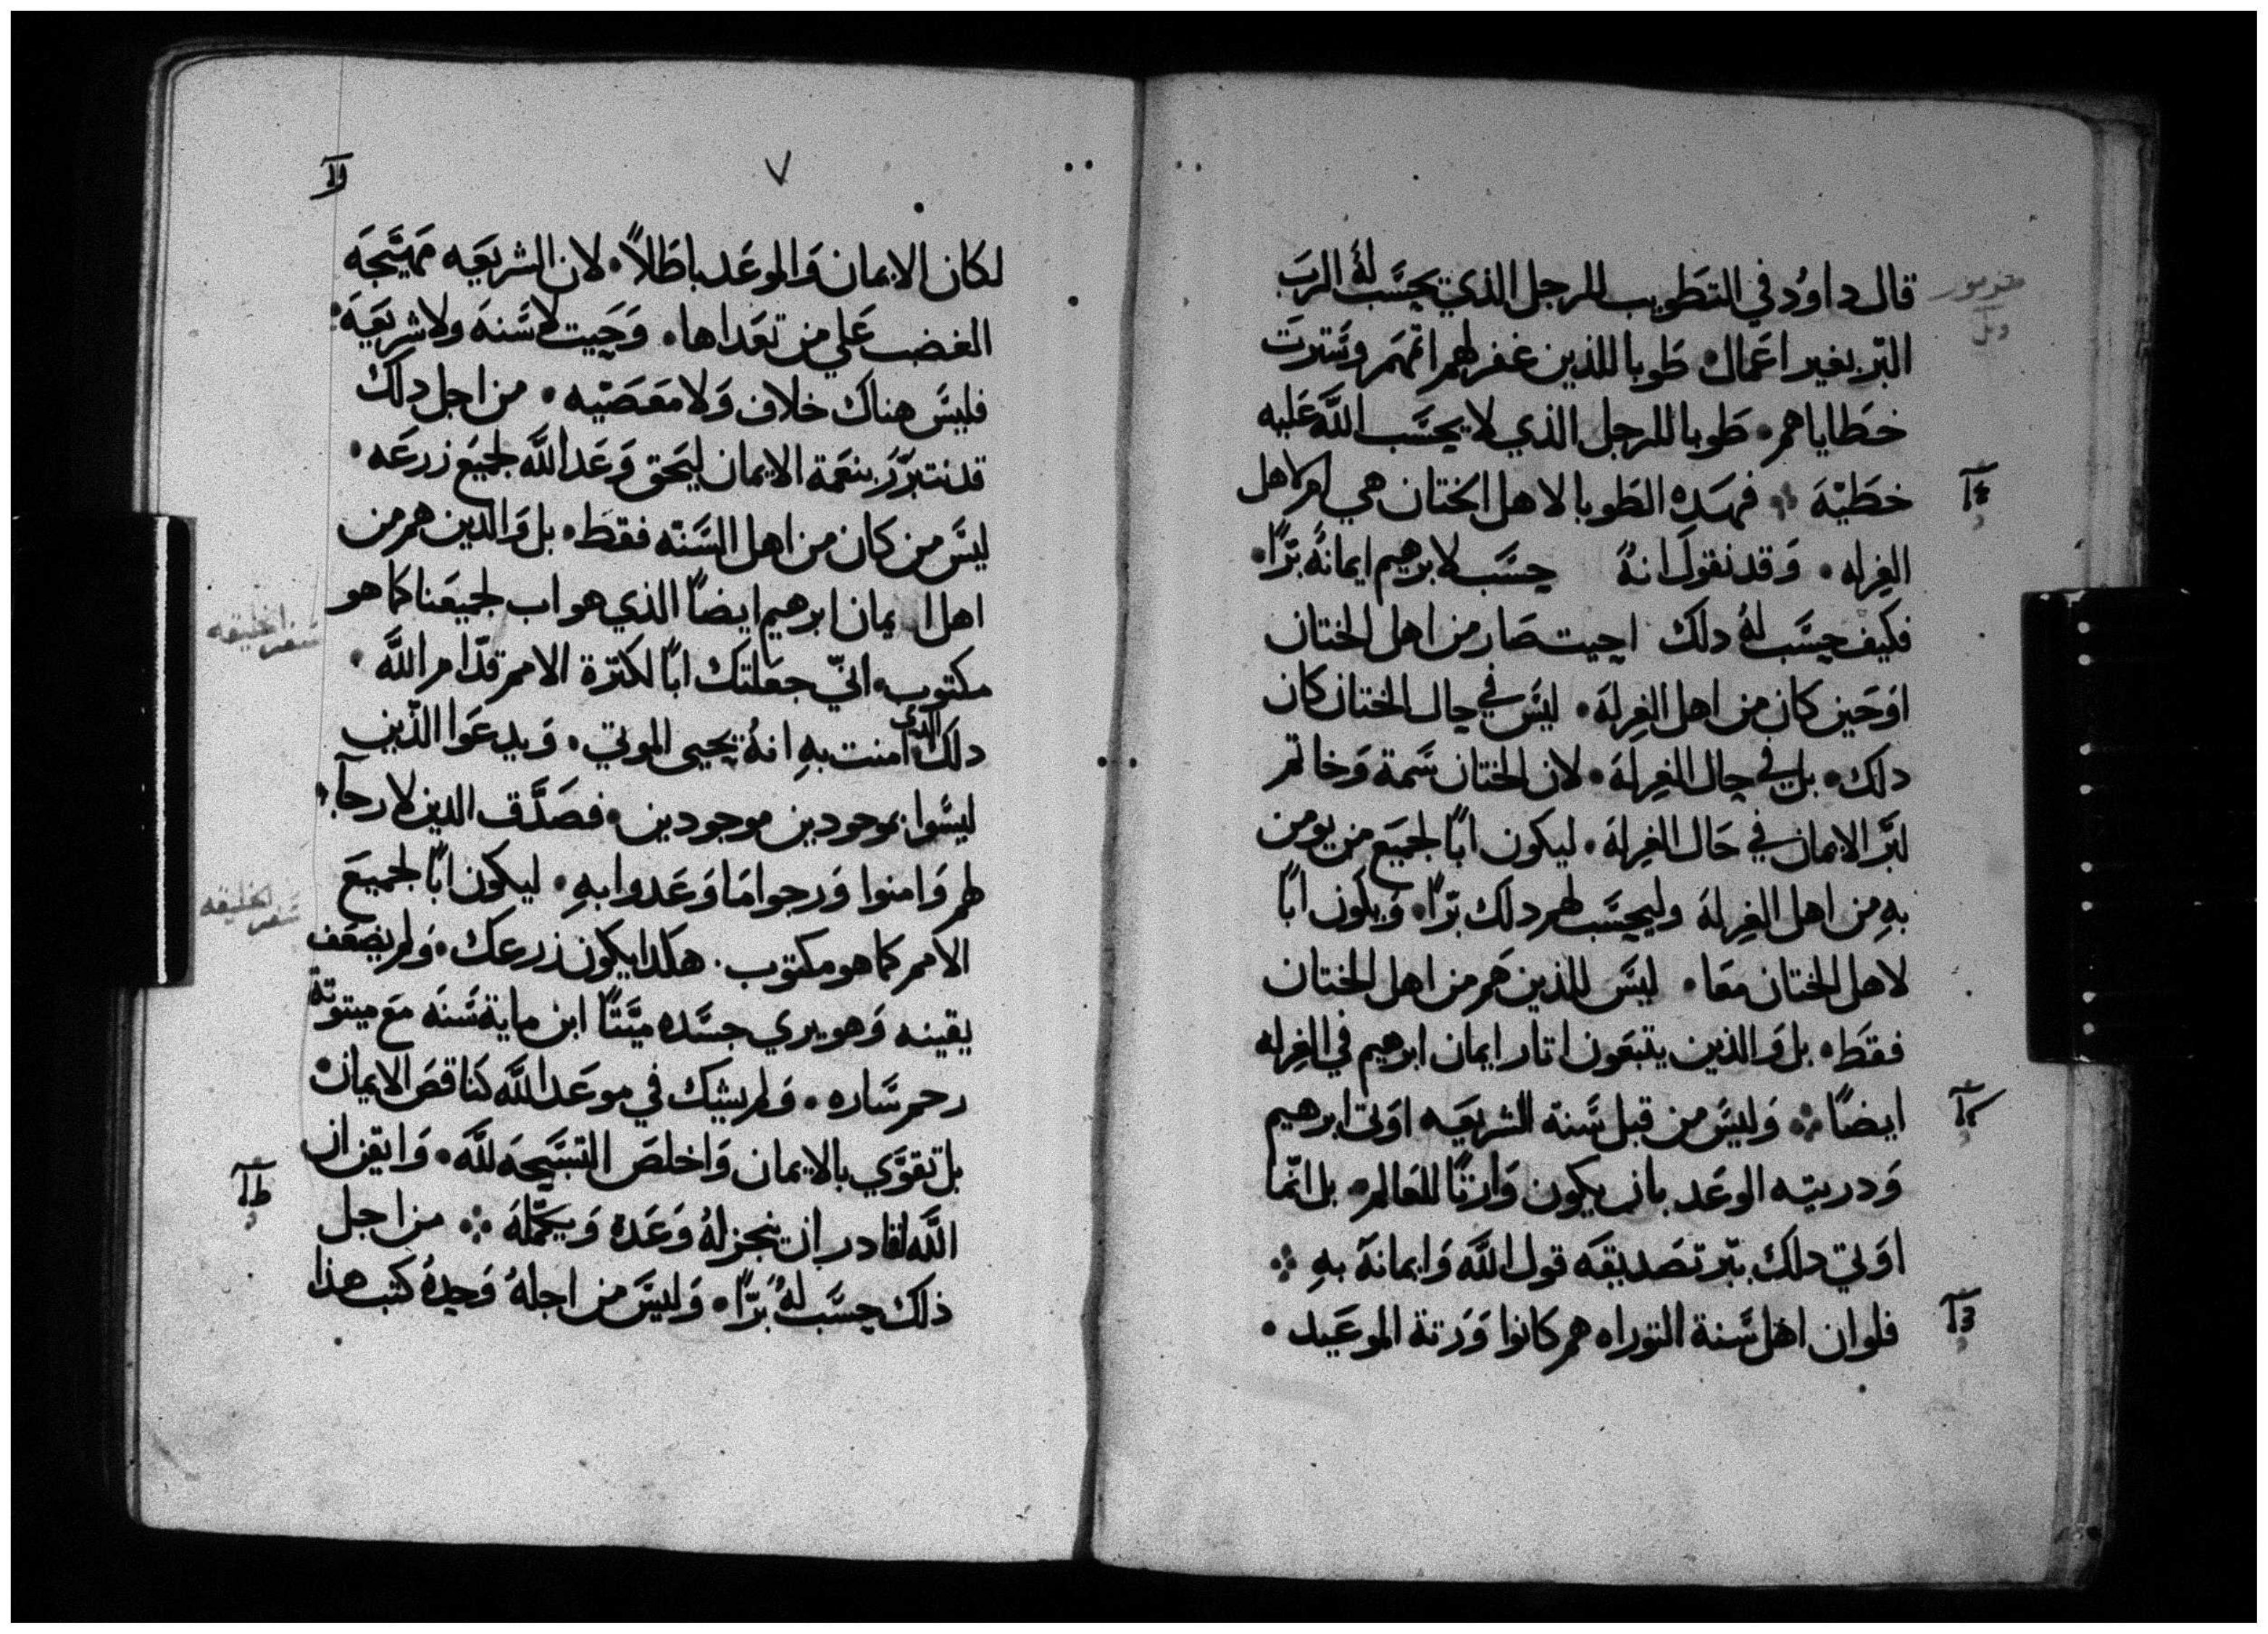 قال داوُد في التطَويب للرجل الذي يحسَب لهُ الربَ
البّر بغير اعمال طَوبا للذين غفر لهم اتمهَم وسَترت
خطاياهم طَوبا للرجل الذي لا يحسَب اللَّه عَليه
خطَيْة فهَده الطَوبا لاهل الختان هي ام لاهل
الغِرله وَقد نقول انهُ حسَب لابرهيم ايمانهُ برًّا
فكيف حسَب لهُ دلك احيت صَار من اهل الختان
اوَحَين كان من اهل الغِرلة ليسَ في حال الختان كان
دلك بل في حال الغِرلة لان الختان سَمة وَخاتم
لبَر الايمان في حَال الغِرلة ليكون ابًا لجميَع من يومن
بهِ من اهل الغِرلة وليحسَب لهم دلك برًّا وَيكون ابًا
لاهل الختان معَا ليسَ للذين هَم من اهل الختان
فقطَ بل وَالذين يتبعَون اتار ايمان ابرهيم في الغِرله
ايضًا وَليسَ من قبل سَنة الشريعَه اوَتى ابرهيم
وَدريته الوعَد بان يكون وَارتًا للعَالم بل انّما
اوَتي دلك ببّر تصَديقه قول اللَّه وَايمانهَ بهِ
فلو ان اهل سَنة التوراه هم كانوا وَرَتة الموعَيد
٧
لكان الايمان وَالموعَد باطَلاً لان الشريعَه مهَيّجهَ
الغضب عَلي من تعَداها وَحَيت لا سَنهَ ولا شريعَة
فليسَ هناك خلاف وَلا معَصَيْه من اجل دلك
قد نتبرّر بنعَمة الايمان ليَحق وَعَد اللَّه لجميَع زرعَه
ليسَ من كان من اهل السَنّه فقطَ بل وَالدين هم من
اهل ايمان ابرهيم ايضاً الذي هو اب لجميعَنا كما هو
مكتوب انيّ جعَلتك ابًا لكترة الامم قدّام اللَّه
دلك الدي امنت بهِ انهُ يحيى الموتي وَيدعَوا الذّين
ليسَوا بموجودين موجودين فصَدَّق الدين لا رجآ
لهم وَامنوا وَرجوا مَا وَعَدوا بهِ ليكون ابًا لجميعَ
الامم كما هو مكتوب هكدا يكون زرعك وَلم يضعَف
يقينه وَهو يري جسَده ميّتًا ابن ماية سَنهَ معَ ميتوتة
رحم سَاره وَلم يشك في موعَد اللَّه كنَاقصَ الايمان
بل تقوَّي بالايمان وَاخلصَ التسَبَيحهَ للَّه وَايقن ان
اللَّه لقادر ان ينجز لهُ وَعَدهَ وَيكمّلهَ من اجل
ذلك حسَب لهُ برًّا وَليسَ من اجلهُ وَحيدهُ كتب هذا